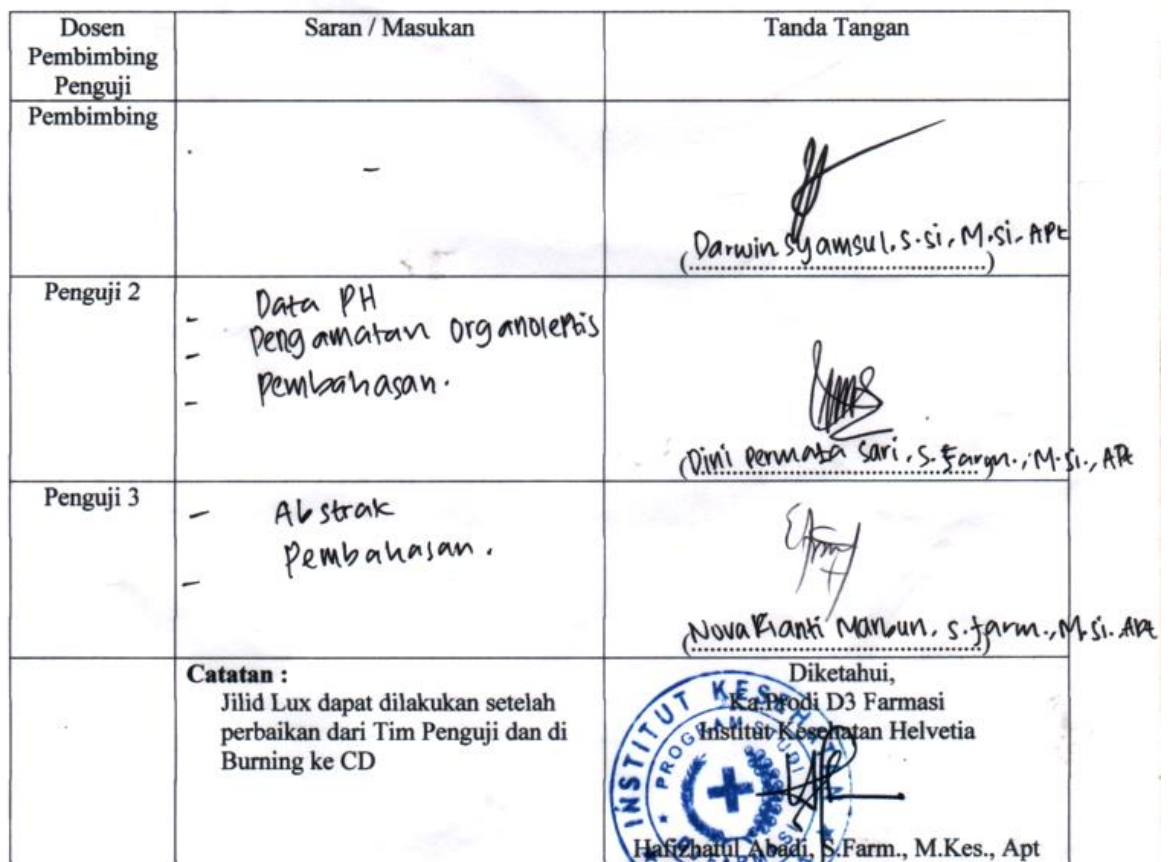 Dosen
Pembimbing
Penguji
Saran / Masukan
Tanda Tangan
Pembimbing
-
Darwin Syamsul, S.Si, M.Si, APt
(..............................)
Penguji 2
- Data PH
- Pengamatan Organoleptis
- Pembahasan.
(Dini Permata Sari, S.Farm., M.Si., APt
Penguji 3
- Abstrak
- Pembahasan.
(Nova Rianti Marbun, S.Farm., M.Si. Apt
Catatan :
Jilid Lux dapat dilakukan setelah
perbaikan dari Tim Penguji dan di
Burning ke CD
Diketahui,
Ka.Prodi D3 Farmasi
Institut Kesehatan Helvetia
Hafizhatul Abadi, S.Farm., M.Kes., Apt
INSTITUT KESEHATAN
PROGRAM STUDI